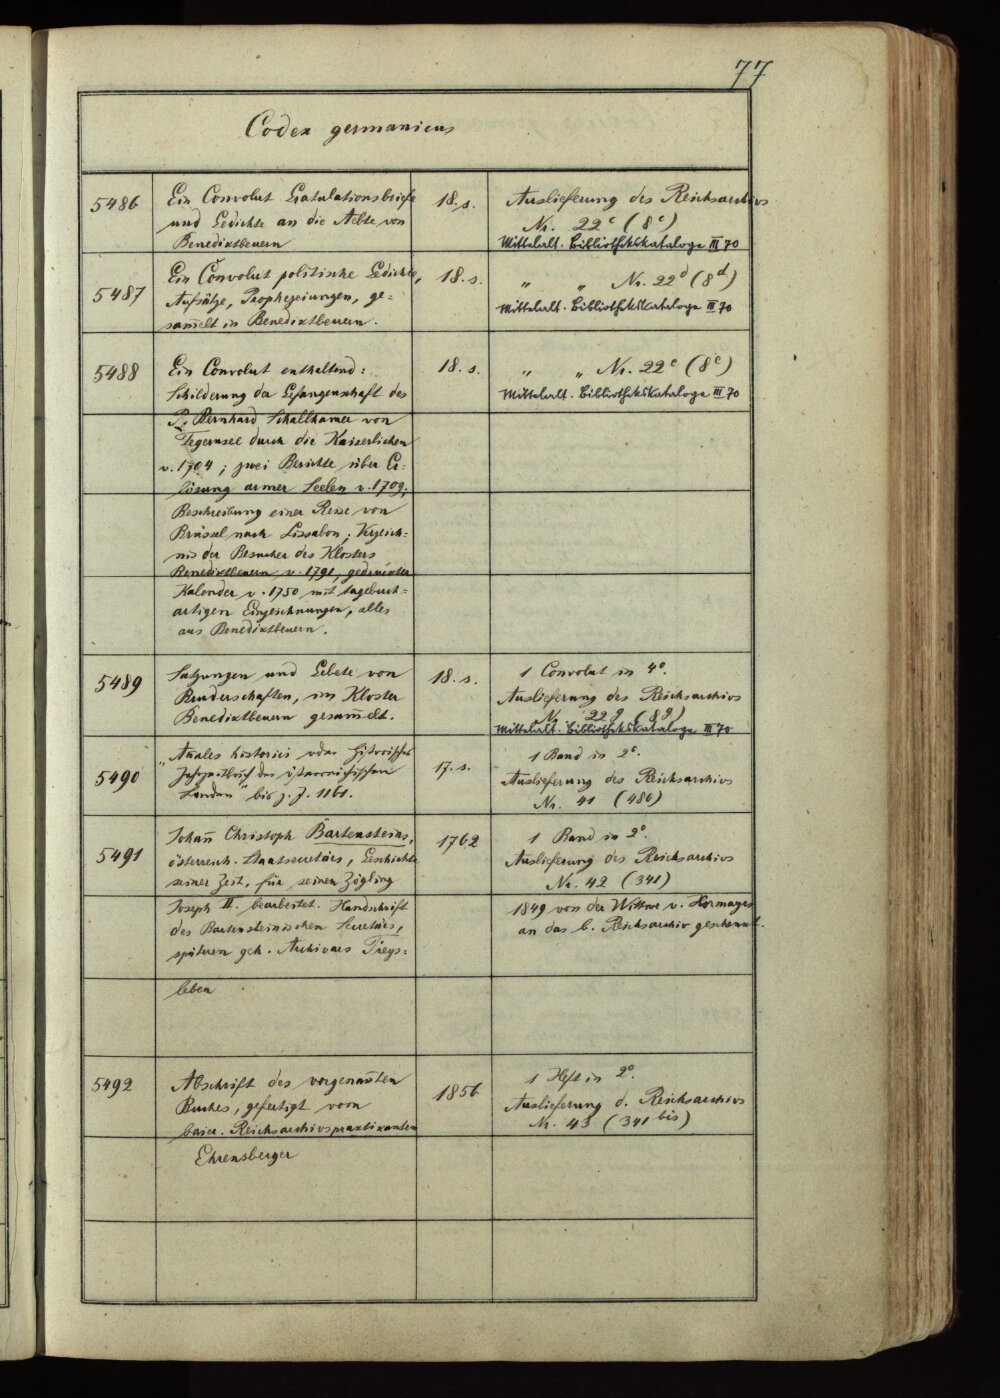 77
Codex germanicus
5486
Ein Convolut Gratulationsbriefe
und Gedichte an die Aebte von
Benediktbeuern
18. s.
Auslieferung des Reichsarchivs
Nr. 22c (8c)
Mittelalt. Bibliothekskataloge III 70
5487
Ein Convolut politische Gedichte,
Aufsätze, Prophezeiungen, ge=
sam̄elt in Benediktbeuern.
18. s.
" " Nr. 22d (8d)
Mittelalt. Bibliothekskataloge III 70
5488
Ein Convolut enthaltend:
Schilderung der Gefangenschaft des
P. Bernhard Schallhamer von
Tegernsee durch die Kaiserlichen
v. 1704; zwei Berichte über Er=
lösung armer Seelen v. 1709;
Beschreibung einer Reise von
Brüssel nach Lissabon; Verzeich=
nis der Besucher des Klosters
Benediktbeuern v. 1791, gedruckter
Kalender v. 1750 mit tagebuch=
artigen Einzeichnungen, alles
aus Benediktbeuern.
18. s.
" " Nr. 22e (8e)
Mittelalt. Bibliothekskataloge III 70
5489
Satzungen und Gebete von
Bruderschaften, im Kloster
Benediktbeuern gesam̄elt.
18. s.
1 Convolut in 4o.
Auslieferung des Reichsarchivs
Nr. 22g (8g)
Mittelalt. Bibliothekskataloge III 70
5490
"Añales historici oder Historisches
Jahrzeitbuch der österreichischen
Landen" bis z. J. 1161.
17. s.
1 Band in 2o.
Auslieferung des Reichsarchivs
Nr. 41 (480)
5491
Johañ Christoph Bartensteins,
österreich. Staatssecretärs, Geschichte
seiner Zeit, für seinen Zögling
Joseph II. bearbeitet. Handschrift
des Bartensteinischen Secretärs,
späteren geh. Archivars Freys=
leben
1762
1 Band in 2o.
Auslieferung des Reichsarchivs
Nr. 42 (341)
1849 von der Wittwe v. Hormayrs
an das b. Reichsarchiv geschenkt.
5492
Abschrift des vorgenañten
Buches, gefertigt vom
baier. Reichsarchivspraktikanten
Ehrensberger
1856
1 Heft in 2o.
Auslieferung d. Reichsarchivs
Nr. 43 (341 bis)